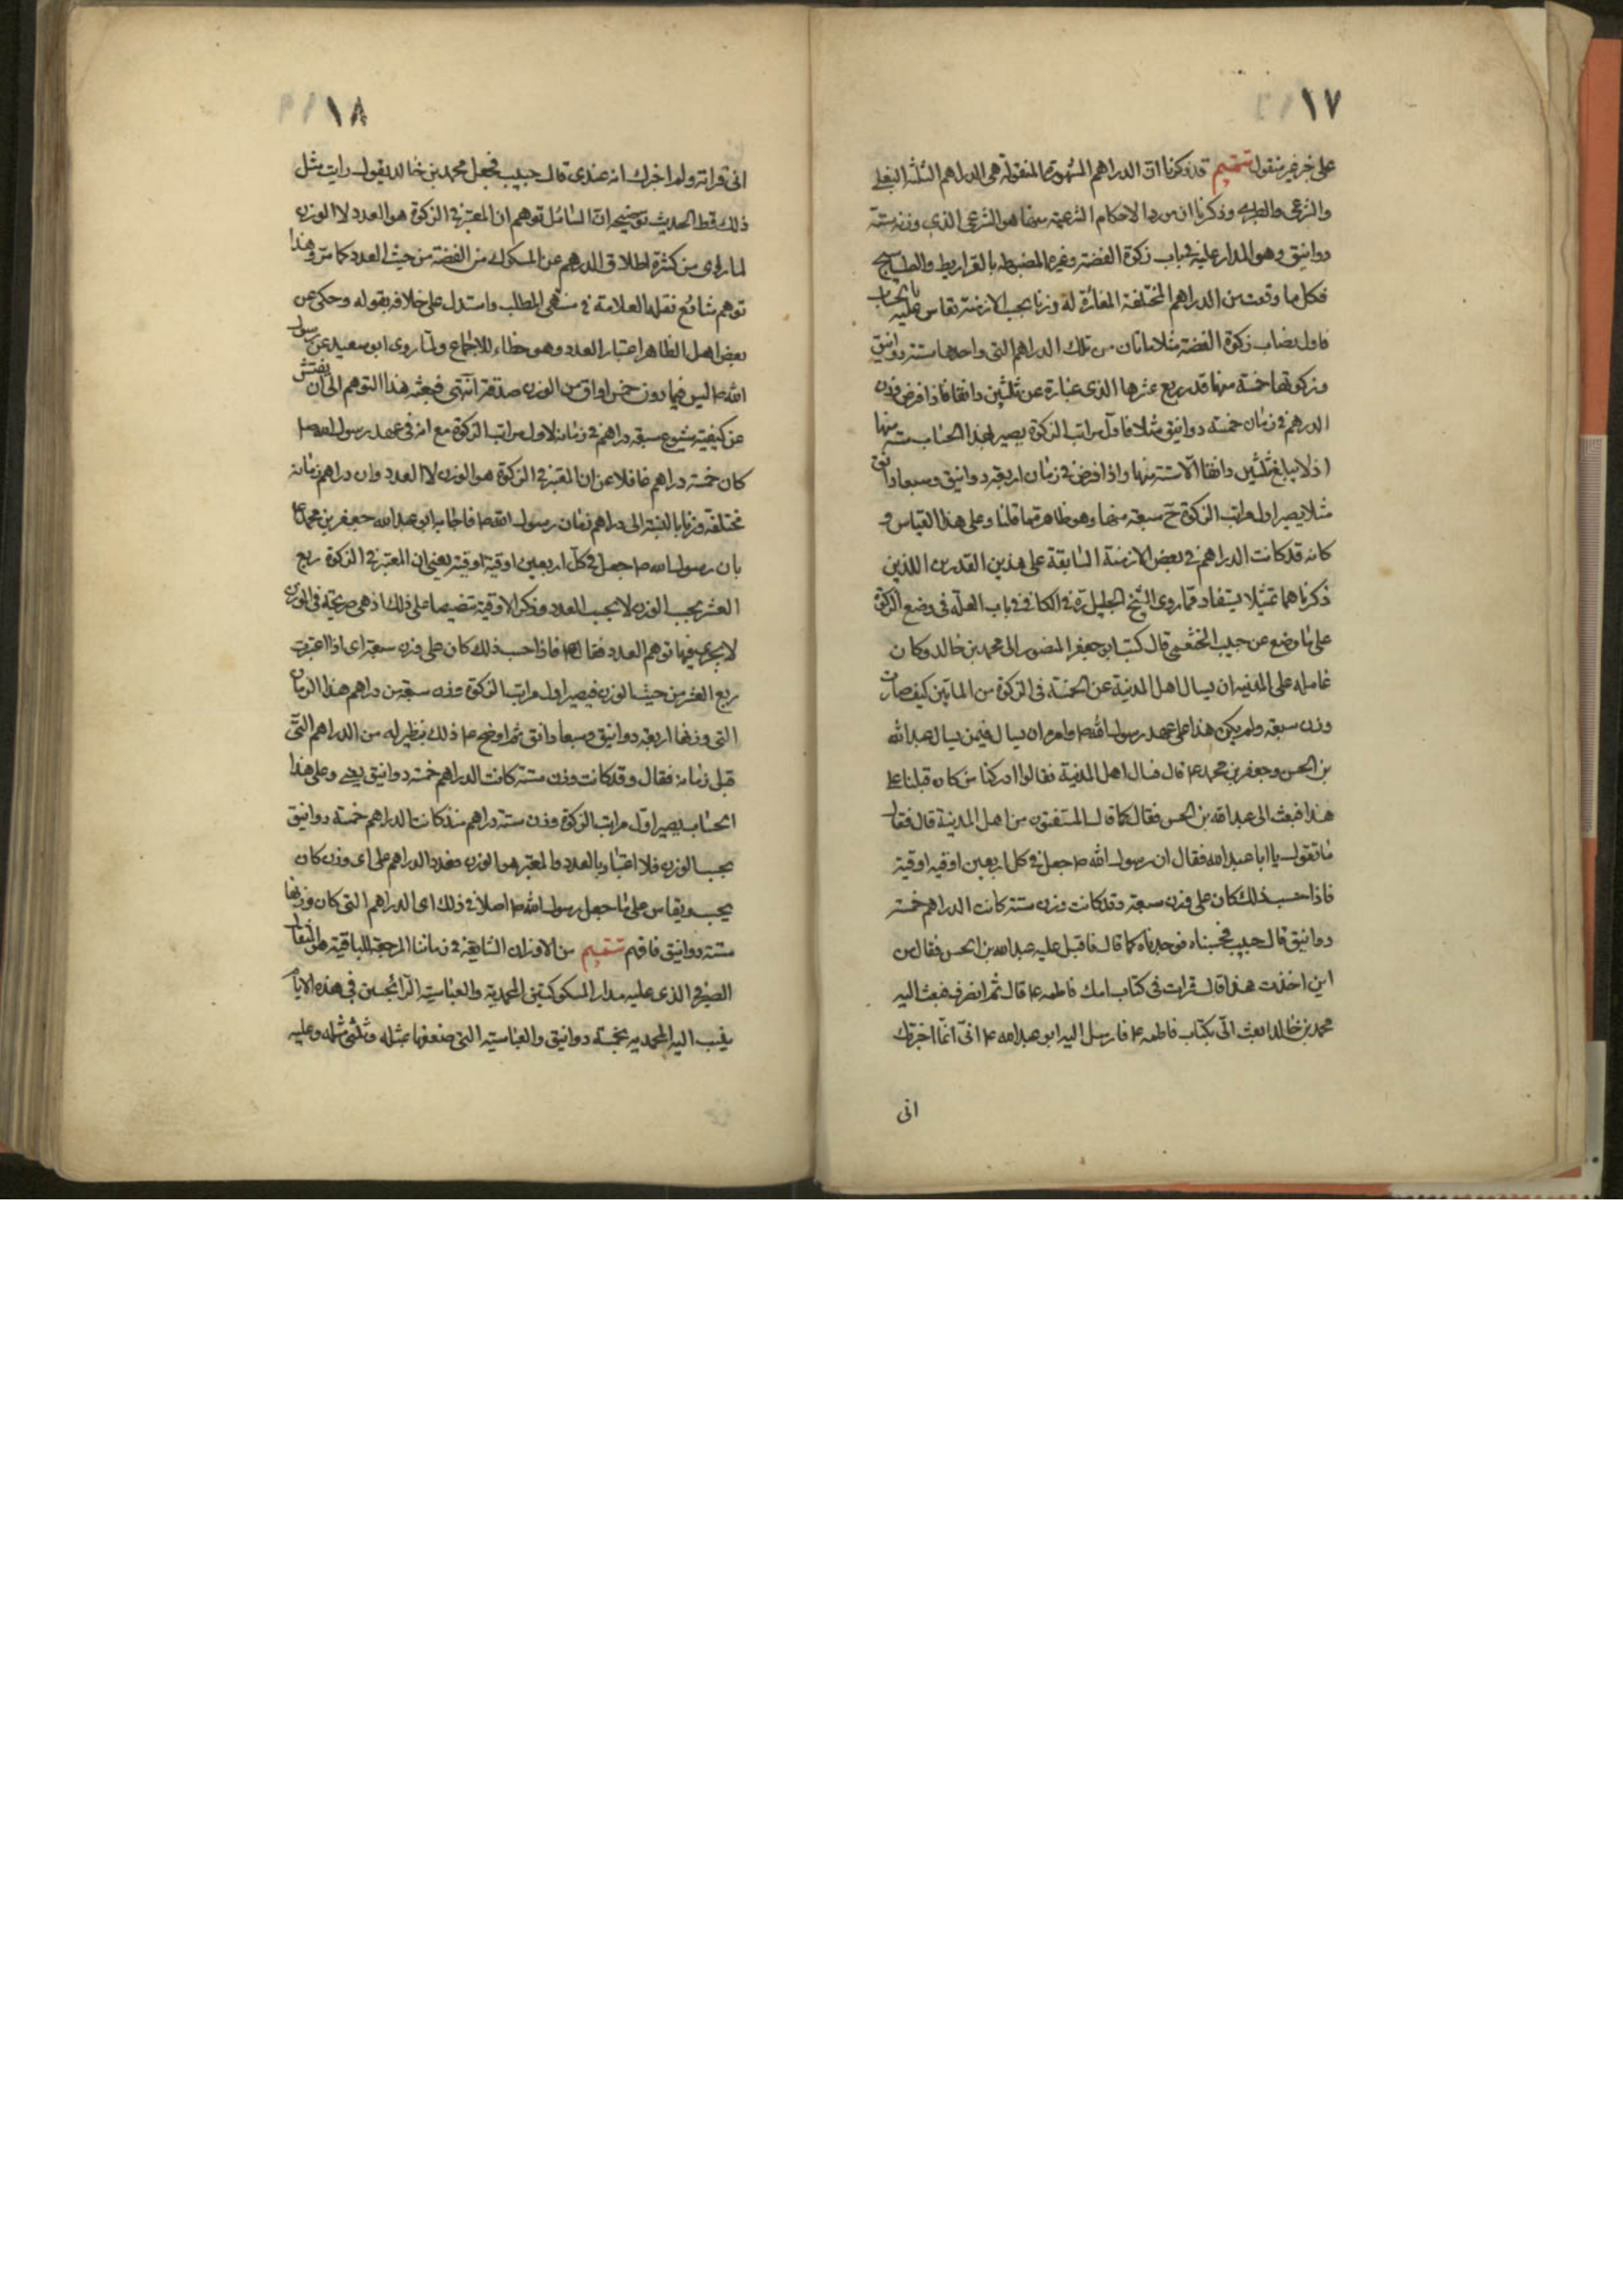 ١٧
على خبر غير منقول تتميم قد ذكرنا ان الدراهم المشهورة المنقولة هى الدراهم الثلثة البغلى
والشرعى والطبرى وذكرنا ان مورد الاحكام الشرعية منها هو الشرعى الذى وزنه ستة
دوانيق وهو المدار عليه فى باب زكوة الفضة وغيره المضبوطه بالقراريط والطساسيج
فكل ما وقعت من الدراهم المختلفة المغائرة له وزنا بحسب الازمنة تقاس عليه بالحساب
فاول نصاب زكوة الفضة مثلا مائتان من تلك الدراهم التى واحدها ستة دوانيق
وزكوتها خمسة منها قدر ربع عشرها الذى عبارة عن ثلثين دانقا فاذا فرض وزن
الدرهم فى زمان خمسة دوانيق مثلا فاول مراتب الزكوة يصير بهذا الحساب ستة منها
اذ لا يبلغ ثلثين دانقا الا ستة منها واذا فرض فى زمان اربعة دوانيق وسبعا دانق
مثلا يصير اول مراتب الزكوة ح سبعة منها وهو ظاهر مما قلنا وعلى هذا القياس و
كانه قد كانت الدراهم فى بعض الازمنة السابقة على هذين القدرين اللذين
ذكرناهما تمثيلا يستفاد مما روى الشيخ الجليل ره فى الكافى فى باب العلة فى وضع الزكوة
على ما وضع عن حبيب الخثعمى قال كتب ابو جعفر المنصور الى محمد بن خالد وكان
عامله على المدينه ان يسال اهل المدينة عن الخمسة فى الزكوة من الماتين كيف صارت
وزن سبعة ولم يكن هذا على عهد رسول الله ص وامره ان يسال فيمن يسال عبد الله
بن الحسن وجعفر بن محمد ع قال فسال اهل المدينة فقالوا ادركنا من كان قبلنا على
هذا فبعث الى عبد الله بن الحسن فقال كما قال المستفتون من اهل المدينة قال فقال
ما تقول يا ابا عبد الله فقال ان رسول الله ص جعل فى كل اربعين اوقيه اوقية
فاذا حسبت ذلك كان على وزن سبعة وقد كانت وزن ستة كانت الدراهم خمسة
دوانيق قال حبيب فحسبناه فوجدناه كما قال فاقبل عليه عبد الله بن الحسن فقال من
اين اخذت هذا قال قرات فى كتاب امك فاطمه ع قال ثم انصرف فبعث اليه
محمد بن خالد ابعث الى بكتاب فاطمه ع فارسل اليه ابو عبد الله ع انى انما اخبرتك
انى
١٨
انى قراته ولم اخبرك انه عندى قال حبيب فجعل محمد بن خالد يقول رايت مثل
ذلك قط الحديث توضيحه ان السائل توهم ان المعتبر فى الزكوة هو العدد لا الوزن
لما راى من كثرة اطلاق الدرهم عن المسكوك من الفضة من حيث العدد كما مر وهذا
توهم شائع نقله العلامة فى منتهى المطلب واستدل على خلافه بقوله وحكى عن
بعض اهل الظاهر اعتبار العدد وهو خطاء للاجماع ولما روى ابو سعيد عن رسول
الله ص ليس فيما دون خمس اواق من الورق صدقة انتهى فبعثه هذا التوهم الى ان يفتش
عن كيفية شيوع سبعة دراهم فى زمانه لاول مراتب الزكوة مع انه فى عهد رسول الله ص
كان خمسة دراهم غافلا عن ان المعتبر فى الزكوة هو الوزن لا العدد وان دراهم زمانه
مختلفة وزنا بالنسبة الى دراهم زمان رسول الله ص فاجابه ابو عبد الله جعفر بن محمد ع
بان رسول الله ص جعل فى كل اربعين اوقية اوقية يعنى ان المعتبر فى الزكوة ربع
العشر بحسب الوزن لا بحسب العدد وذكر الاوقية تنصيصا على ذلك اذ هى صريحة فى الوزن
لا يجرى فيها توهم العدد فقال ع فاذا حسبت ذلك كان على وزن سبعة اى اذا اعتبرت
ربع العشر من حيث الوزن فيصير اول مراتب الزكوة وزن سبعة من دراهم هذا الزمان
التى وزنها اربعة دوانيق وسبعا دانق ثم اوضح ع ذلك بنظير له من الدراهم التى
قبل زمانه فقال وقد كانت وزن ستة كانت الدراهم خمسة دوانيق يعنى وعلى هذا
الحساب يصير اول مراتب الزكوة وزن ستة دراهم منذ كانت الدراهم خمسة دوانيق
بحسب الوزن فلا اعتبار بالعدد والمعتبر هو الوزن فعدد الدراهم على اى وزن كان
يحسب ويقاس على ما جعل رسول الله ص اصلا فى ذلك اى الدراهم التى كان وزنها
ستة دوانيق فافهم تتميم من الاوزان الشايعة فى زماننا المرجعة للباقية هو المثقال
الصيرفى الذى عليه مدار المسكوكتين المحمدية والعباسية الرائجتين فى هذه الايام
ينسب اليه المحمديه بخمسة دوانيق والعباسيه التى ضعفها بمثله وثلثى مثله وعليه